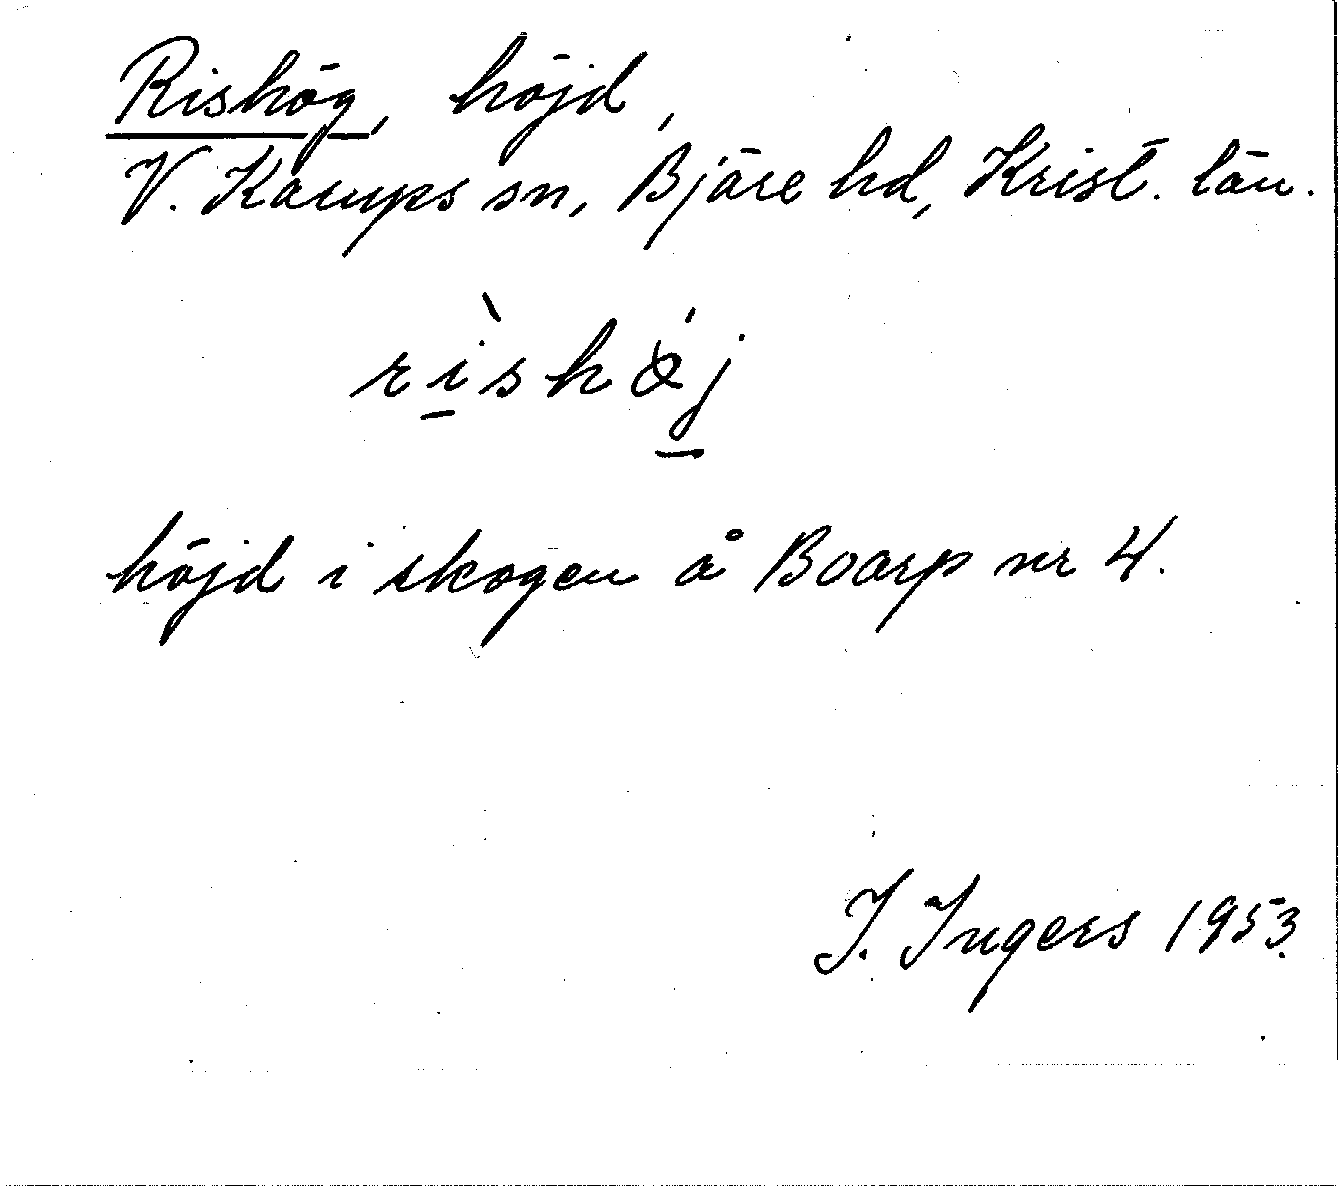 Rishög, höjd,
V. Karups sn, Bjäre hd, Krist. län.
rìshǿj
höjd i skogen å Boarp nr 4.
I. Ingers 1953.